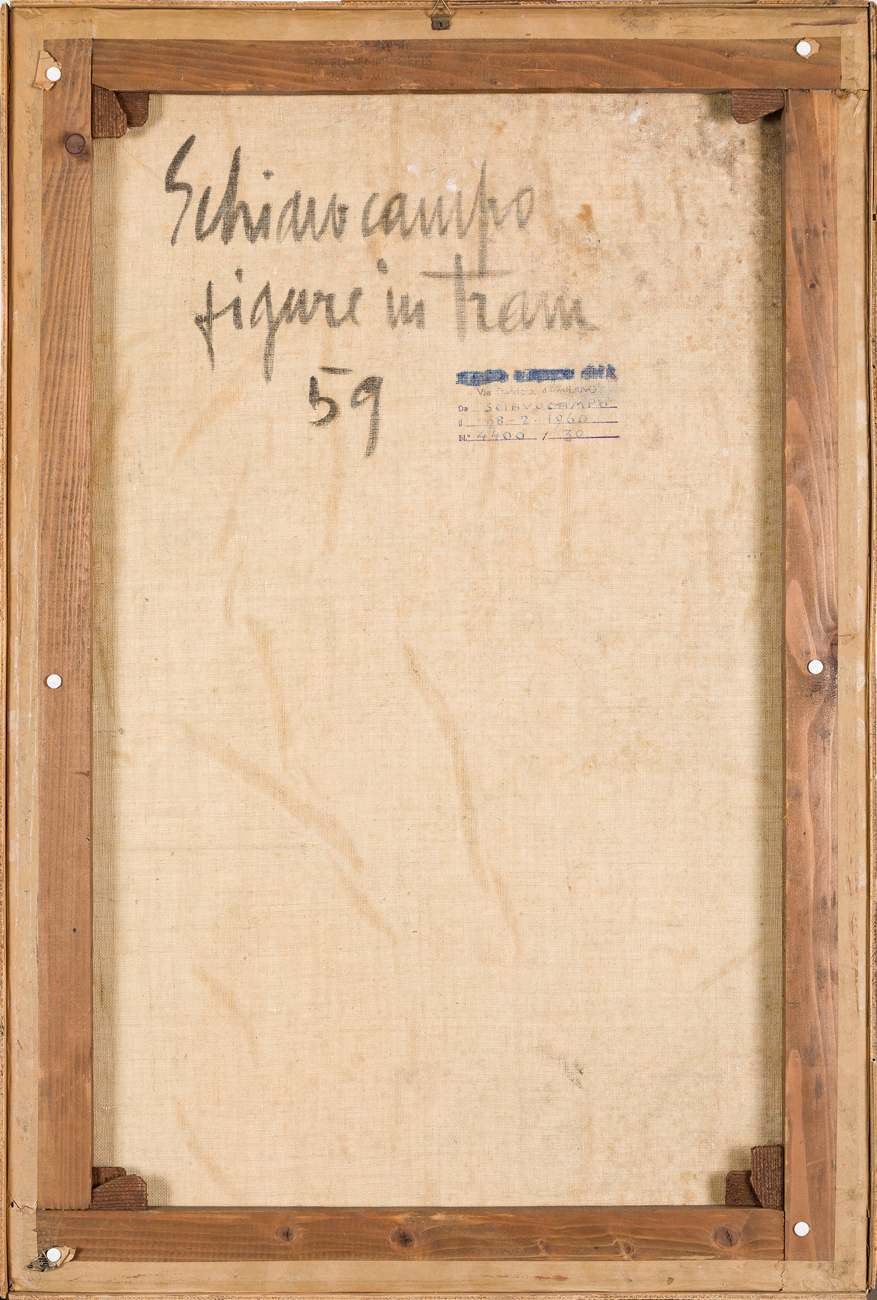 Schiavocampo
figure in tram
59
Via MILANO
Da SCIAVOCAMPO
il 08-2-1960
N.° 4400 / 30